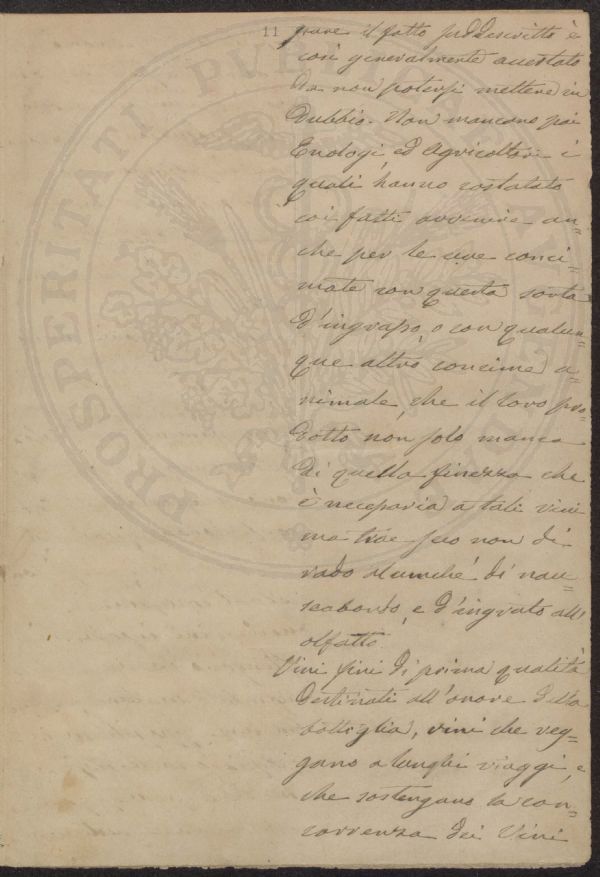 11
prave il fatto suddescritto è
così generalmente attestato
da non potersi mettere in
dubbio. Non mancano poi
Enologi ed Agricoltori i
quali hanno costatato
coi fatti avvenire an=
che per le uve conci=
mate con questa sorta
d'ingrasso, o con qualun=
que altro concime a=
nimale, che il loro pro=
dotto non solo manca
di quella finezza che
è necessaria a tali vini
ma trae seco non di
rado alcunché di nau=
seabondo, e d'ingrato all'
olfatto.
Vini fini di prima qualità
destinati all'onore della
bottiglia, vini che reg=
gano a lunghi viaggi, e
che sostengano la con=
correnza dei Vini
PROSPERITATI PVBLICAE AVGENDAE